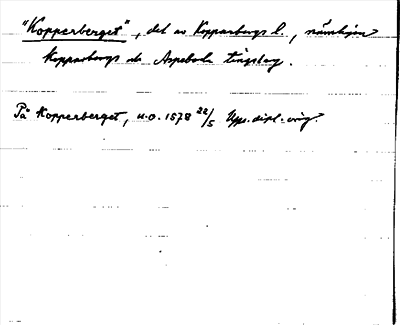 "Kopperberget", del av Kopparbergs l., nämligen
Kopparbergs och Aspeboda tingslag.
På Kopperberget, u.o. 1578 22/5 Upps. dipl. orig.